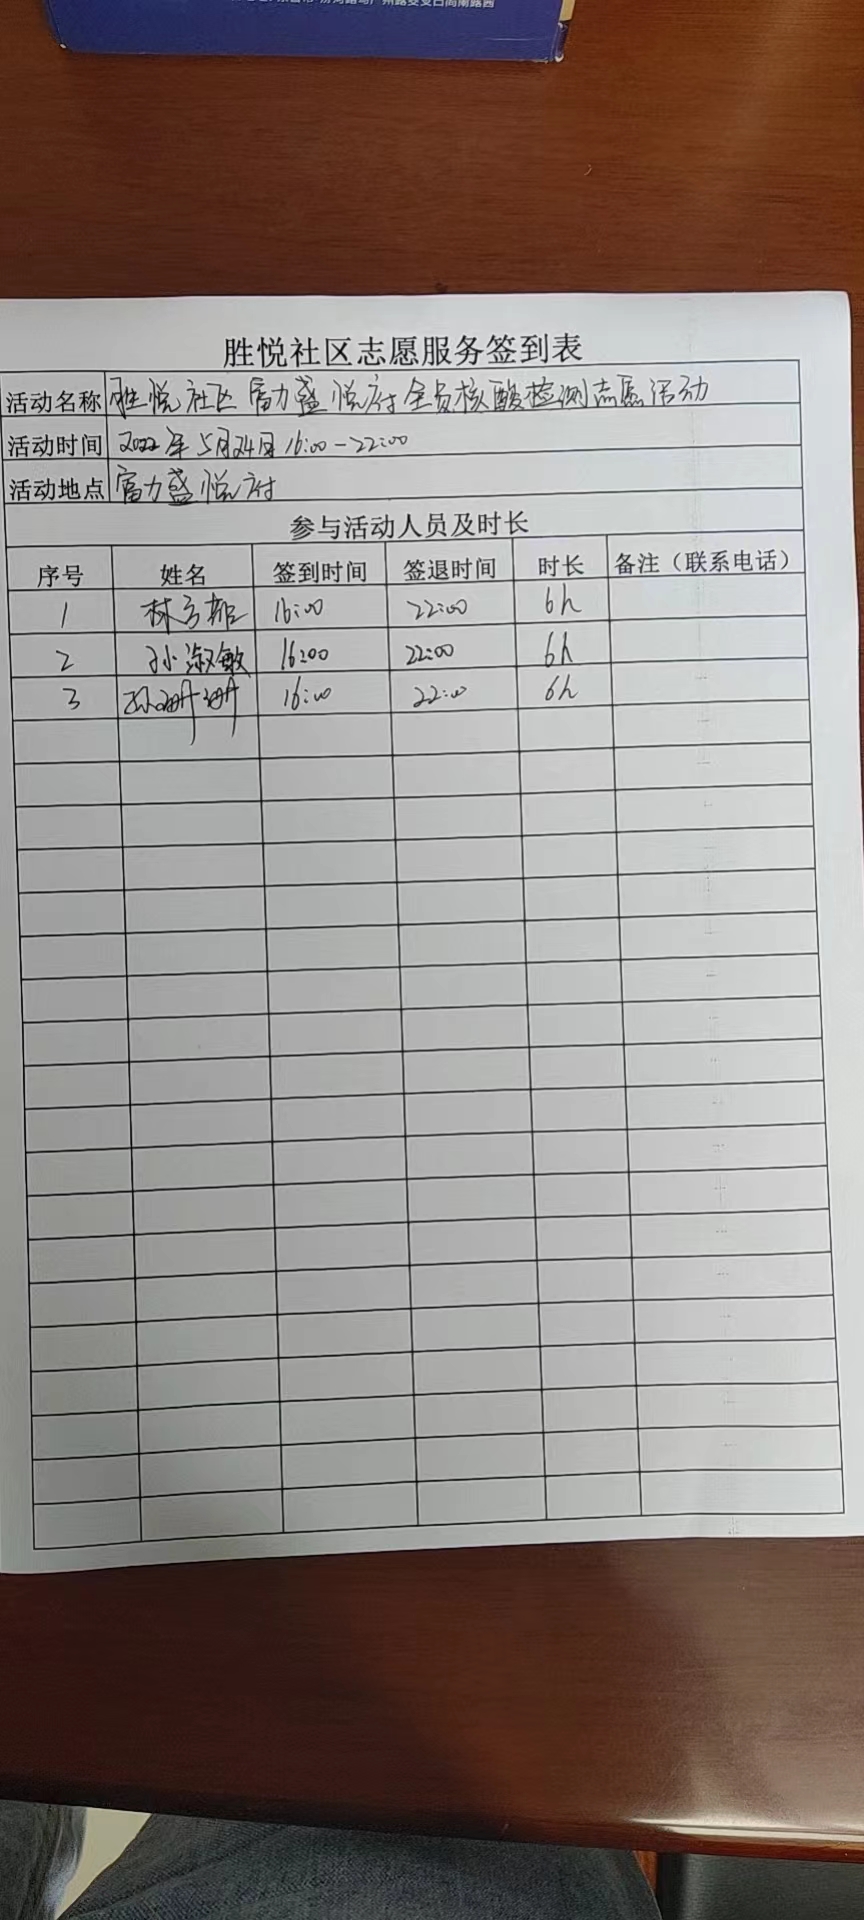 胜悦社区志愿服务签到表
活动名称 胜悦社区富力盛悦府全员核酸检测志愿活动
活动时间 2022年5月24日16:00-22:00
活动地点 富力盛悦府
参与活动人员及时长
序号 姓名 签到时间 签退时间 时长 备注（联系电话）
1 林 16:00 22:00 6h
2 孙淑敏 16:00 22:00 6h
3 孙珊珊 16:00 22:00 6h